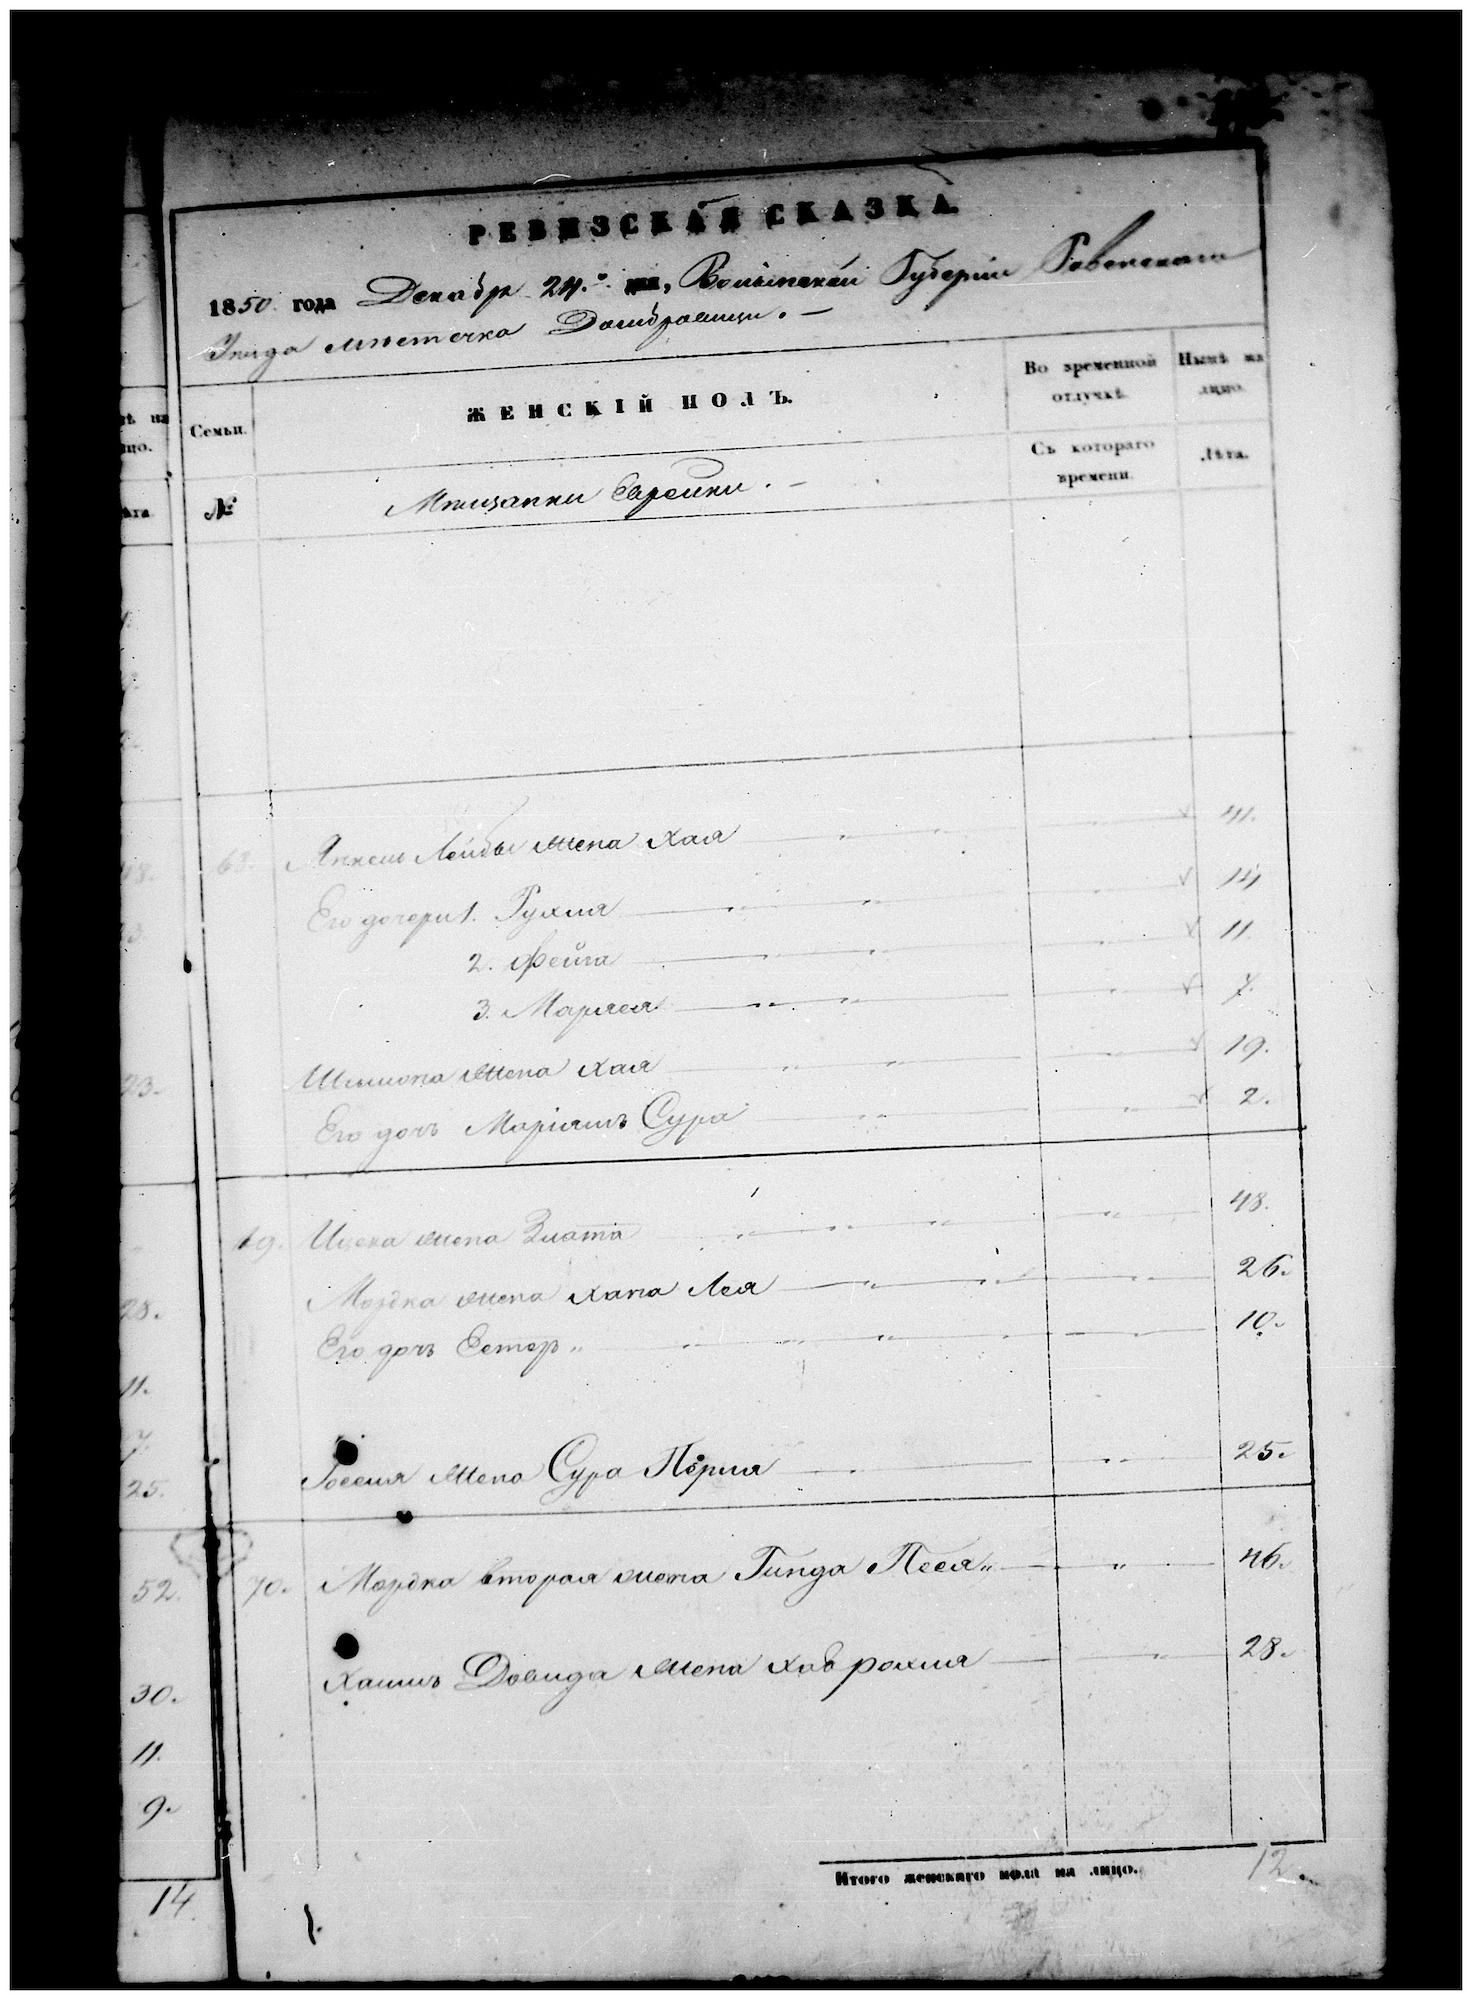 РЕВИЗСКАЯ СКАЗКА
1850 года Декабр 24.го дня, Волынской Губернии Ровенского
Уезда местечка Домбровици. —
Семьи.
ЖЕНСКІЙ ПОЛЪ.
Во временной отлучкѣ.
Нынѣ на лицо.
№
Мещанки Еврейки. —
Съ котораго времени.
Лѣта.
Лейбы жена Хая 41.
Его дочери 1. Рухля 14
2. Фейга 11.
3. Маріея 7.
жена Хая 19.
Его дочь Маріямъ Сура 2.
69. Ицека жена Злата 48.
Мордка жена Хана Лея 26.
Его дочь Естер 10.
жена Сура Перля 25.
70. Мордка вторая жена Гинда Песя 46.
Хаимъ Довида жена Хав рохля 28.
Итого женскаго пола на лицо. 12.
ѣ на
цо.
ѣта
48.
23.
28.
11.
7.
25.
52.
30.
11.
9.
14